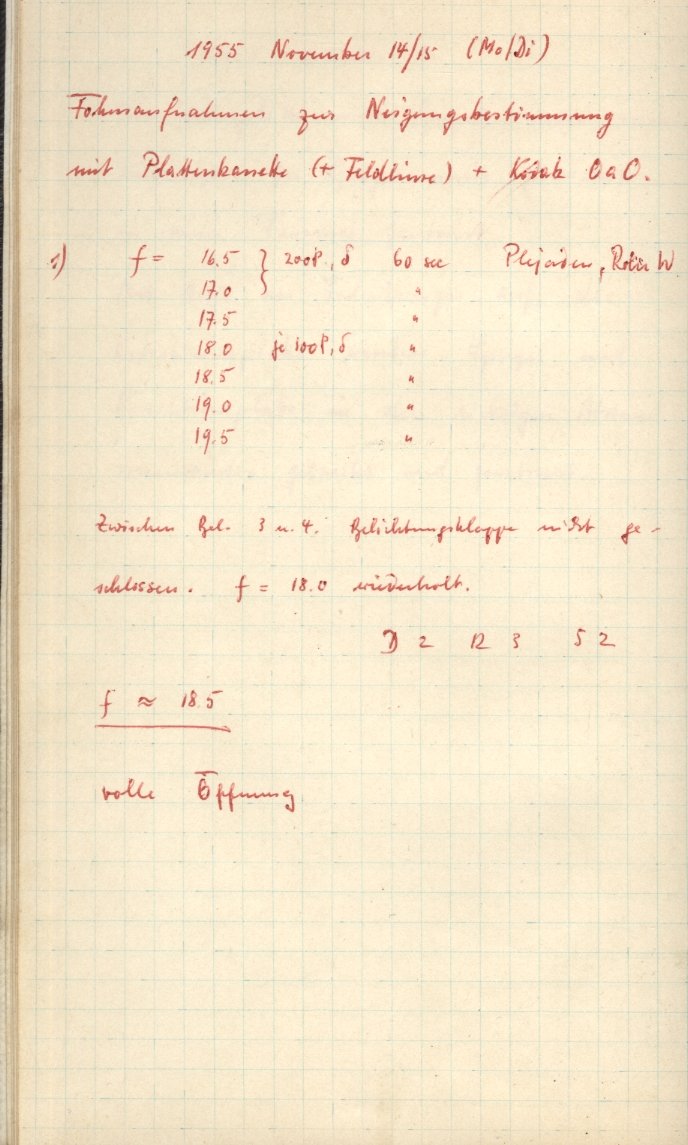 1955 November 14/15 (Mo/Di)
Fokusaufnahmen zur Neigungsbestimmung
mit Plattenkassette (+ Feldlinse) + Kodak OaO.
1) f = 16.5 } 200P, δ 60 sec Plejaden, W
17.0 "
17.5 "
18.0 je 100P, δ "
18.5 "
19.0 "
19.5 "
Zwischen Bel. 3 u. 4. Belichtungsklappe nicht ge-
schlossen. f = 18.0 wiederholt.
D 2 R 3 S 2
f ≈ 18.5
volle Öffnung